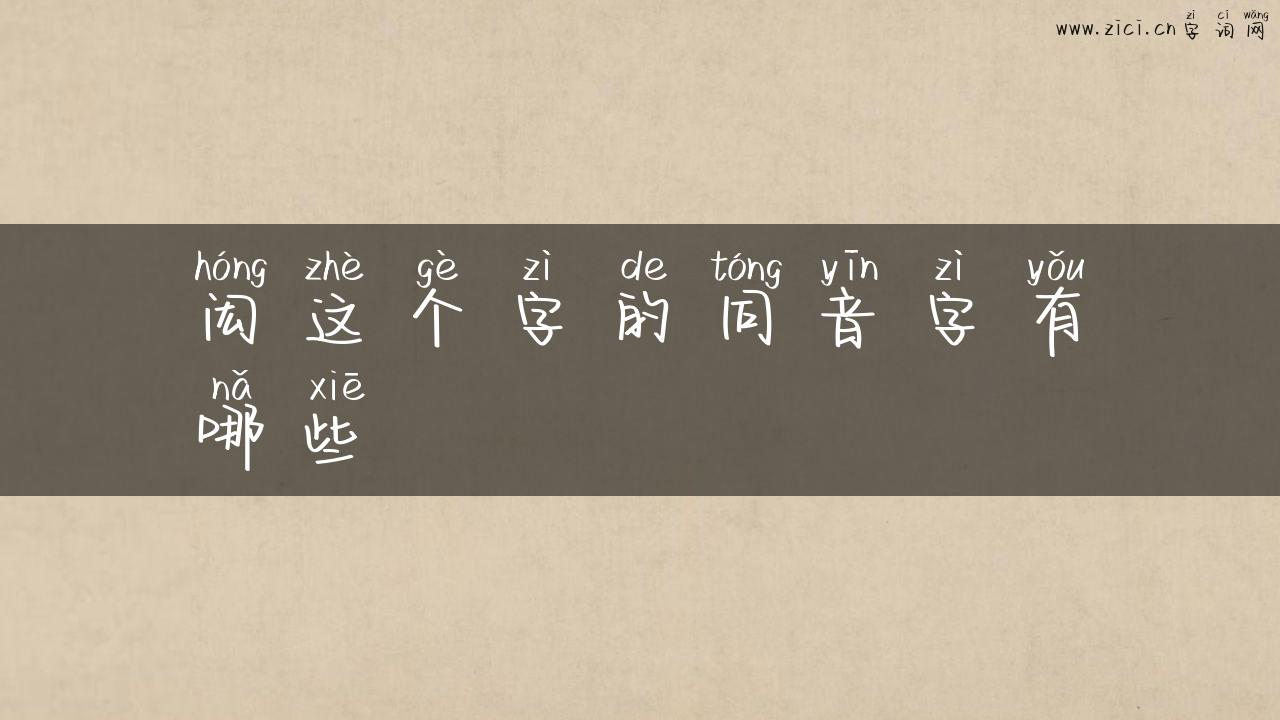 zì cí wǎng
www.zici.cn 字词网
hóng zhè gè zì de tóng yīn zì yǒu
闳这个字的同音字有
nǎ xiē
哪些